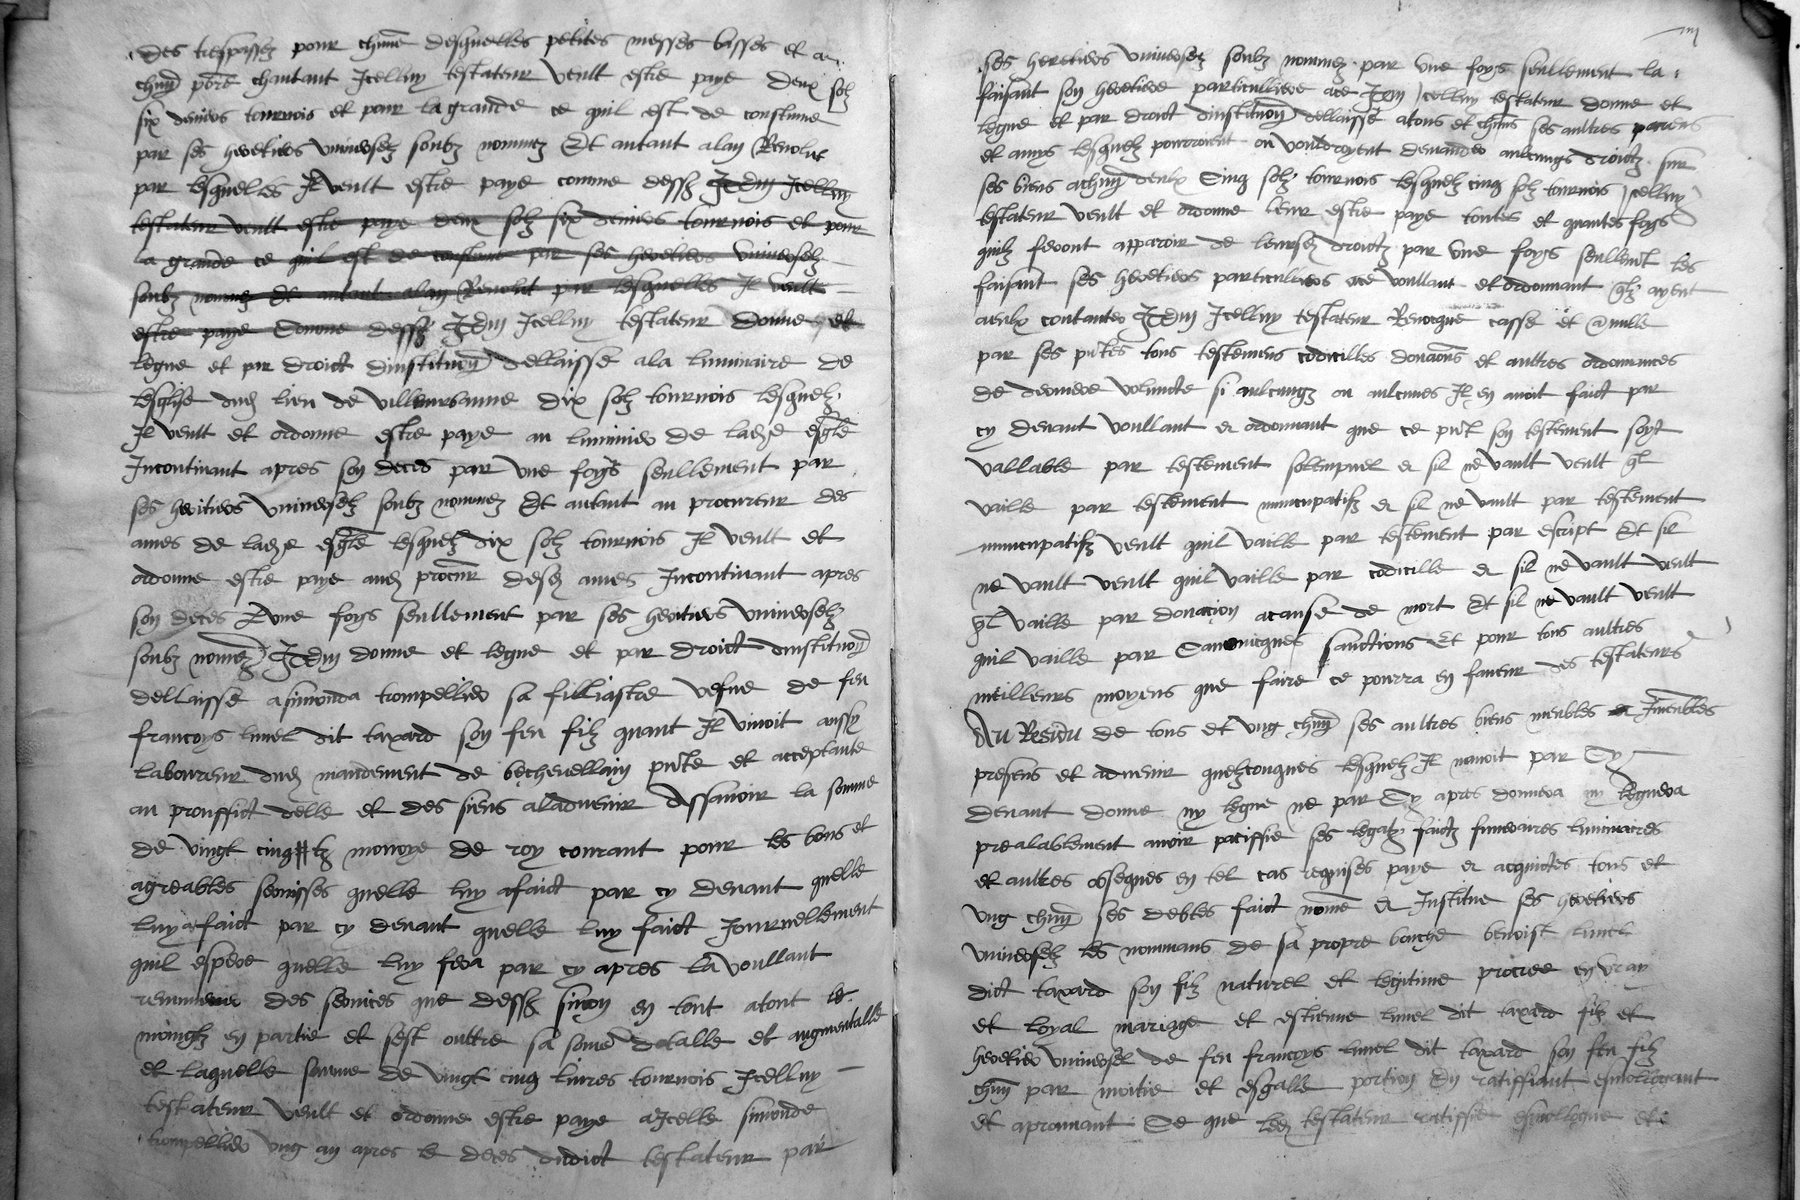 des trespasses pour chune desquelles petites messes basses et a
chun pbre chantant Icelluy testateur veult estre paye deux solz
six deniers tournois et pour la grande ce quil est de coustume
par ses heretiers universelz soubz nommez Et autant a lan Revolut
par lesquelles Il veult estre paye comme dessus Item Icelluy
testateur veult estre paye deux solz six deniers tournois et pour
la grande ce quil est de coustume par ses heretiers universelz
soubz nommez Et autant a lan Revolut par lesquelles Il veult
estre paye Comme dessus Item Icelluy testateur donne et
legue et par droict dinstitution dellaisse a la luminaire de
leglise dud lieu de villeurbanne dix solz tournois lesquelz
Il veult et ordonne estre paye au luminier de lade esglie
Incontinant apres son deces par une foys seullement par
ses heritiers universelz soubz nommez Et autant au procureur des
ames de lade esglie lesquelz dix solz tournois Il veult et
ordonne estre paye aud procur desd ames Incontinant apres
son deces d une foys seullement par ses heritiers universelz
soubz nomez Item donne et legue et par droict dinstitution
dellaisse a simonda trompellier sa filliastre vefve de feu
francoys lunel dit taxard son feu filz quant Il vivoit aussy
laboureur dud mandement de bechevellain pnte et acceptante
au prouffict delle et des siens a ladvenir Assavoir la somme
de vingt cinq lz monoye de roy courant pour les bons et
agreables servisses quelle luy a faict par cy devant quelle
luy a faict par cy devant quelle luy faict Journellement
quil espere quelle luy fera par cy apres la voullant
remunerer des services que dessus sinon en tout atout le
moingtz en partie et sest oultre sa some dotalle et augmentalle
et laquelle somme de vingt cinq livres tournois Icelluy
testateur veult et ordonne estre paye a Icelle simonde
trompellier ung an apres le deces dudict testateur par
ses heretiers universelz soubz nommez par une foys seullement la
faisant son heretiere particulliere ace Item Icelluy testateur donne et
legue et par droict dinstitution dellaisse a tous et chuns ses aultres parens
et amys lesquelz pourroient ou vouldroyent demander aulcungs droictz sur
ses biens a chun deulx Cinq solz tournois lesquelz cinq solz tournois Icelluy
testateur veult et ordonne leur estre paye toutes et quantes foys
quilz feront apparoir de leursd droictz par une foys seullemt les
faisant ses heretiers particuliers ace voullant et ordonnant qlz ayent
a eulx contanter Item Icelluy testateur Revocque casse et anulle
par ses pntes tous testemens codicilles donaons et aultres ordonnances
de derniere volunte si aulcungz ou aulcunes Il en avoit faict par
cy devant voullant et ordonnant que ce pnt son testement soyt
vallable par testement sollempnel et sil ne vault veult ql
vaille par testement nuncupatifz et sil ne vault par testement
nuncupatifz veult quil vaille par testement par escript Et sil
ne vault veult quil vaille par codicille et sil ne vault veult
ql vaille par donacion a cause de mort Et sil ne vault veult
quil vaille par Canonicques sanctions Et pour tous aultres
meilleurs moyens que faire ce pourra en faveur des testateurs
Au Residu de tous et ung chun ses aultres biens meubles et Imeubles
presens et advenir quelzconques lesquelz Il navoit par Cy
devant donne ny legue ne par Cy apres donnera ny leguera
prealablement avoir patiffie ses legatz faictz funeraires luminaires
et aultres obseques en tel cas requises paye et acquictes tous et
ung chun ses debtes faict nome et Institue ses heretiers
universelz les nommans de sa propre bouche benoist lunel
dict taxard son filz naturel et legitime procree en vray
et loyal mariage et estienne lunel dit taxard filz et
heretier universel de feu francoys lunel dit taxard son feu filz
chun par moitie et esgalle portion En ratiffiant esmollogant
et aprouvant Ce que led testateur ratiffie esmollogue et